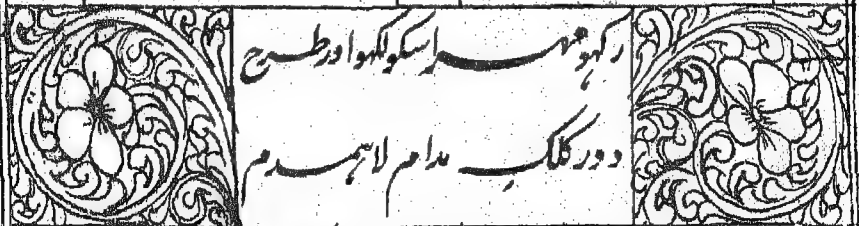 رکھو مہر اسکو لکھوا ور طرح
دور کلک مدام لا ہمدم